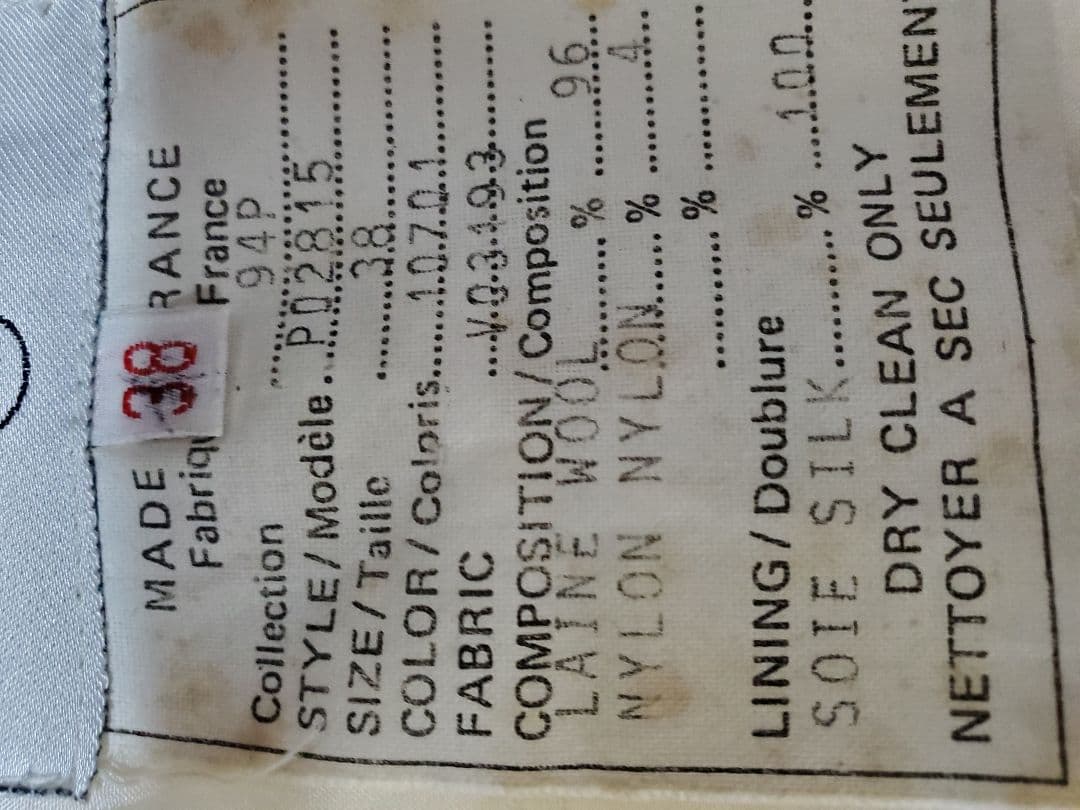 MADE RANCE
38
Fabriqu France
Collection 94P
STYLE/Modèle P02815
SIZE/Taille 38
COLOR/Coloris 10701
FABRIC V03193
COMPOSITION/Composition
LAINE WOOL % 96
NYLON NYLON % 4
%
LINING/Doublure
SOIE SILK % 100
DRY CLEAN ONLY
NETTOYER A SEC SEULEMENT